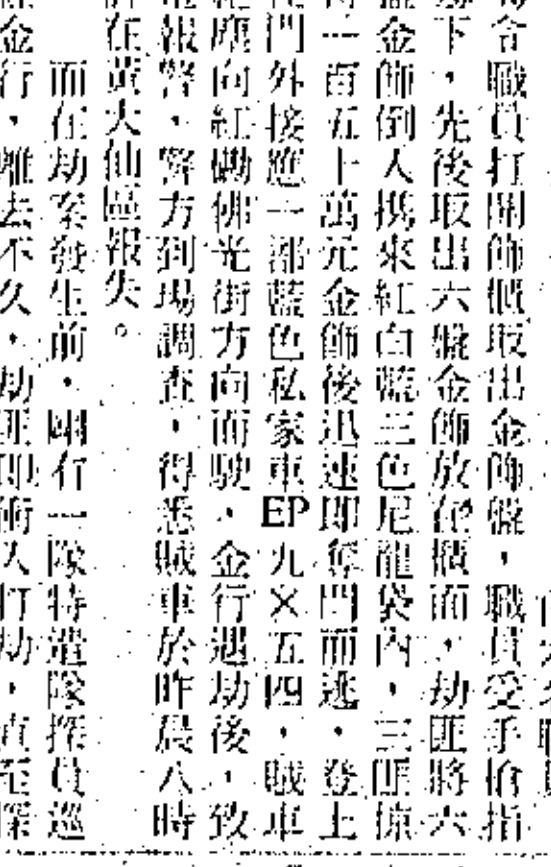 令職員打開飾櫃取出金飾盤，職員受手槍指
下，先後取出六盤金飾放在櫃面，劫匪將六
盤金飾倒入携來紅白藍三色尼龍袋內，三匪掠
一百五十萬元金飾後迅速即奪門而逃，登上
門外接應一部藍色私家車EP九×五四，賊車
絕塵向紅磡佛光街方向而駛，金行遇劫後，致
電報警，警方到場調查，得悉賊車於昨晨八時
許在黃大仙區報失。
而在劫案發生前，剛有一隊特遣隊探員巡
金行，離去不久，劫匪即衝入打劫，直至深